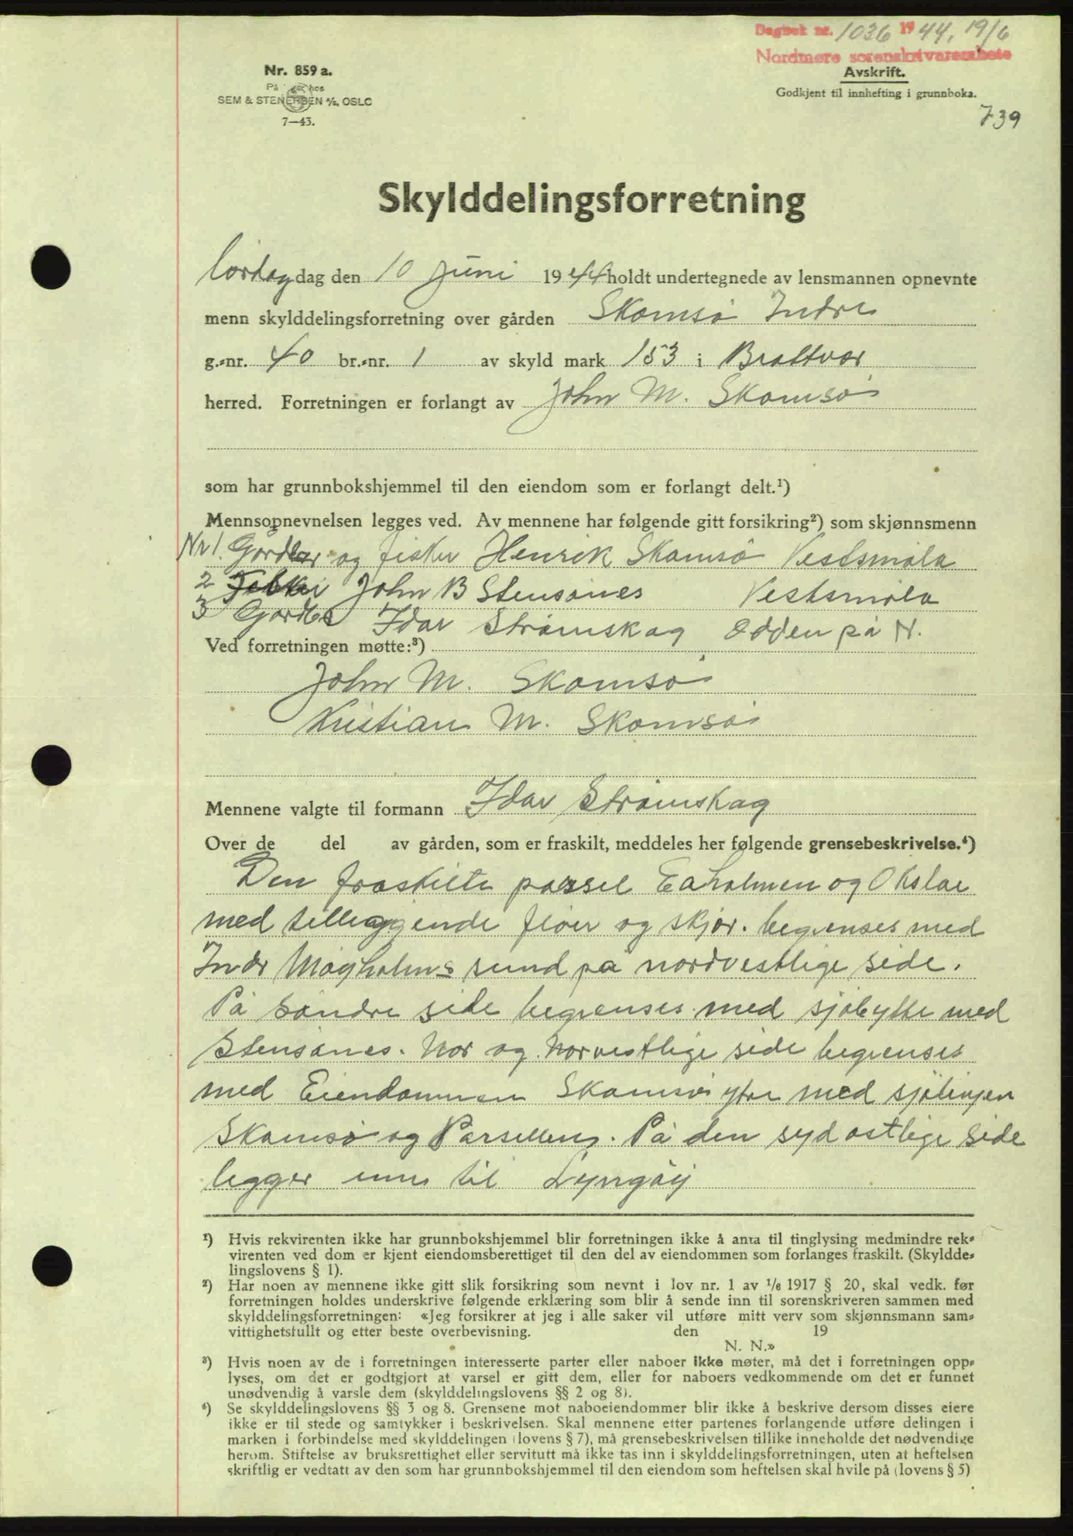 Dagbok nr. 1036 1944, 19/6
Nordmøre sorenskriverembete
Nr. 859 a.
På lager hos
SEM & STENERSEN A/S, OSLO
7—43.
Avskrift.
Godkjent til innhefting i grunnboka.
739
Skylddelingsforretning
Lørdag dag den 10 juni 1944 holdt undertegnede av lensmannen opnevnte
menn skylddelingsforretning over gården Skomsø Indre
g.-nr. 40 br.-nr. 1 av skyld mark 153 i Brattvær
herred. Forretningen er forlangt av John M. Skomsø
som har grunnbokshjemmel til den eiendom som er forlangt delt.¹)
Mennsopnevnelsen legges ved. Av mennene har følgende gitt forsikring²) som skjønnsmenn
Nr 1. Gårdbr og fisker Henrik Skomsø Vestsmøla
2 John B Stensønes Vestsmøla
3 Gårdbr Idar Strømskag Odden på N.
Ved forretningen møtte:³)
John M. Skomsø
Kristian M. Skomsø
Mennene valgte til formann Idar Strømskag
Over de del av gården, som er fraskilt, meddeles her følgende grensebeskrivelse.⁴)
Den fraskilte parsel Eaholmen og Okslae
med tilleggende fløer og skjør. begrenses med
Indr Magholms sund på nordvestlige side.
På søndre side begrenses med sjøbytte med
Stensønes. Nor og Norvestlige side begrenses
med Eiendommen Skomsø ytre med sjølinjen
Skomsø og Parsellen. På den sydostlige side
ligger inn til Lyngøy
¹) Hvis rekvirenten ikke har grunnbokshjemmel blir forretningen ikke å anta til tinglysing medmindre rek-
virenten ved dom er kjent eiendomsberettiget til den del av eiendommen som forlanges fraskilt. (Skyldde-
lingslovens § 1).
²) Har noen av mennene ikke gitt slik forsikring som nevnt i lov nr. 1 av 1/6 1917 § 20, skal vedk. før
forretningen holdes underskrive følgende erklæring som blir å sende inn til sorenskriveren sammen med
skylddelingsforretningen: «Jeg forsikrer at jeg i alle saker vil utføre mitt verv som skjønnsmann sam-
vittighetsfullt og etter beste overbevisning. den 19
N. N.»
³) Hvis noen av de i forretningen interesserte parter eller naboer ikke møter, må det i forretningen opp-
lyses, om det er godtgjort at varsel er gitt dem, eller for naboers vedkommende om det er funnet
unødvendig å varsle dem (skylddelingslovens §§ 2 og 8).
⁴) Se skylddelingslovens §§ 3 og 8. Grensene mot naboeiendommer blir ikke å beskrive dersom disses eiere
ikke er til stede og samtykker i beskrivelsen. Skal mennene etter partenes forlangende utføre delingen i
marken i forbindelse med skylddelingen (lovens § 7), må grensebeskrivelsen tillike inneholde det nødvendige
herom. Stiftelse av bruksrettighet eller servitutt må ikke tas inn i skylddelingsforretningen, uten at heftelsen
skriftlig er vedtatt av den som har grunnbokshjemmel til den eiendom som heftelsen skal hvile på (lovens § 5)